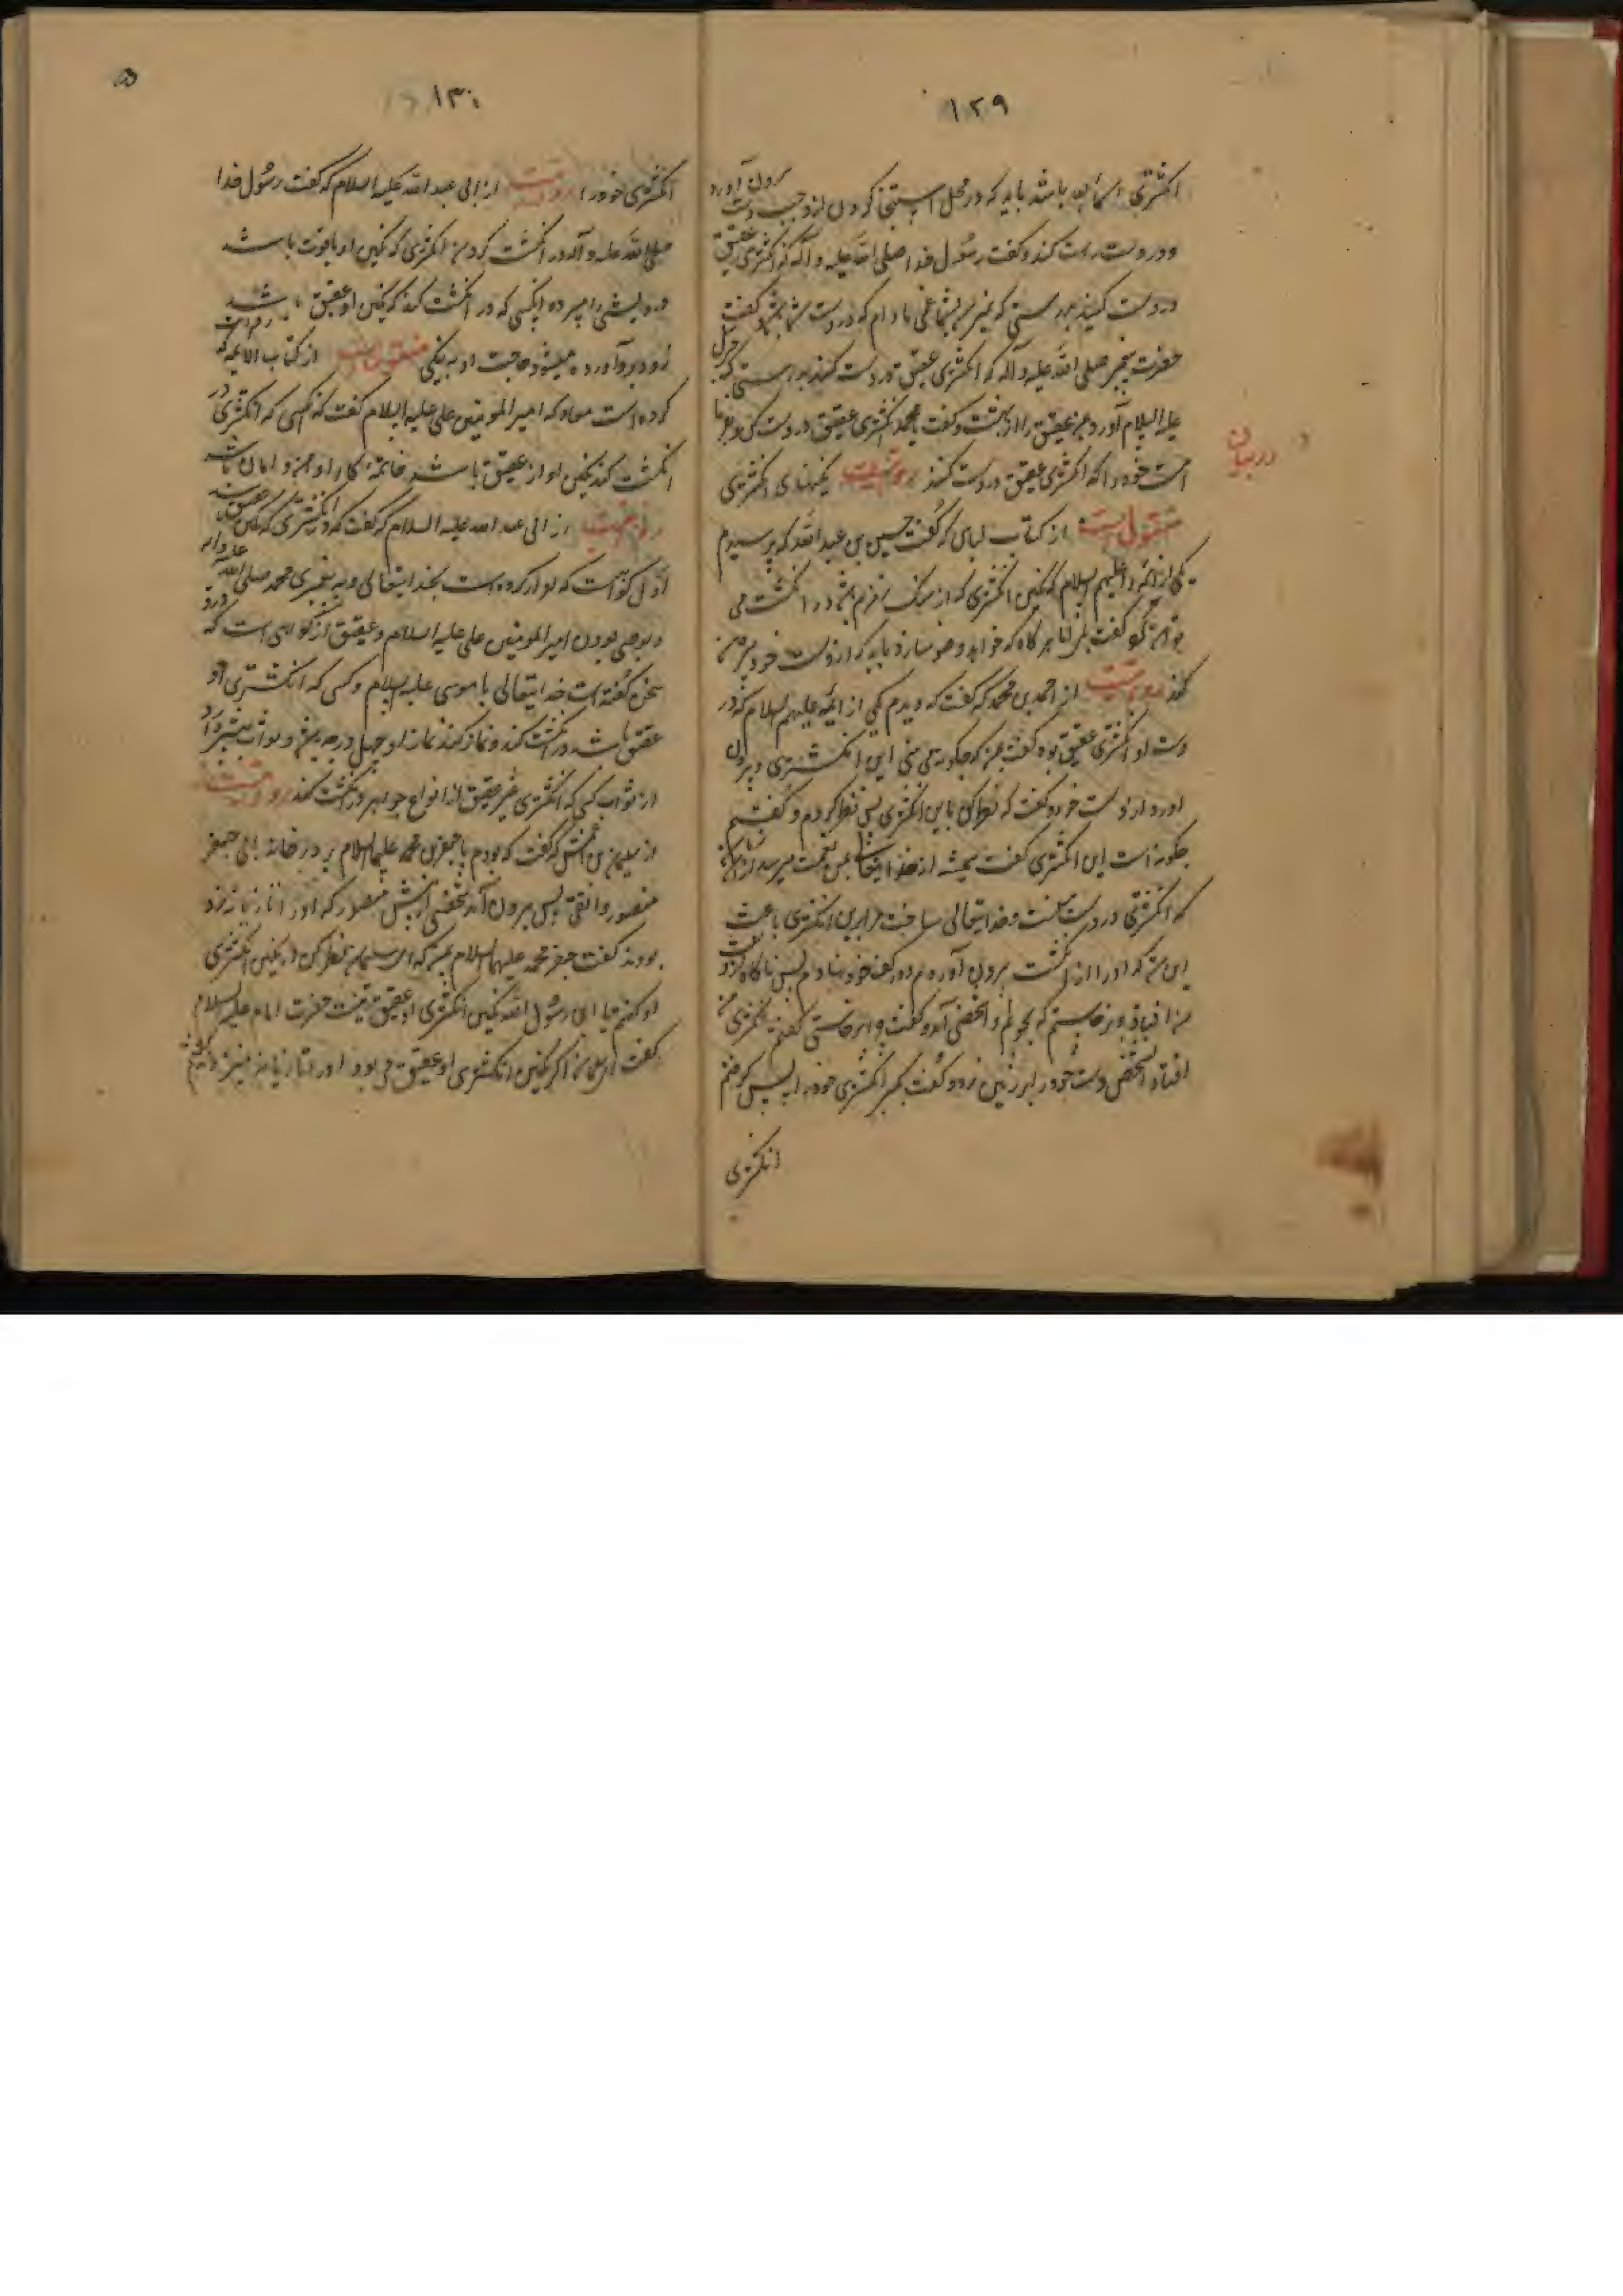 ۱۲۹
انگشتری اسماء الله باشد باید که در محل استنجا کردن از دست چپ بیرون آورد
و در دست راست کند و گفت رسول خدا صلی الله علیه و آله که انگشتری عقیق
در دست کنید بدرستی که نمیرسد بشما غمی مادام که در دست شما باشد و گفت
حضرت پیغمبر صلی الله علیه و آله که انگشتری عقیق در دست کنید بدرستی که جبرئیل
علیه السلام آورد عقیق را از بهشت و گفت یا محمد انگشتری عقیق در دست کن و بفرما
امت خود را که انگشتری عقیق در دست کنند نگینهای انگشتری
در بیان
منقول است از کتاب لباس که گفت حسین بن عبد الله که پرسیدم
یکی از ائمه را علیهم السلام که نگین انگشتری که از سنگ زمزم باشد در انگشت می
توان کرد گفت بلی اما هر گاه که خواهد وضو سازد باید که از دست خود بیرون
کند روایت است از احمد بن محمد که گفت که دیدم یکی از ائمه علیهم السلام که در
دست او انگشتری عقیق بود گفت بمن که چگونه می بینی این انگشتری و بیرون
آورد از دست خود و گفت که نظر کن باین انگشتری پس نظر کردم و گفتم
چگونه است این انگشتری گفت همیشه از خدا ایتعالی بمن نعمت میرسد
که انگشتری در دست منست و خدا ایتعالی ساخت مرا برین انگشتری باعث
این که او را از انگشت بیرون آوردم و در کف خود نهادم پس ناگاه از دست
من افتاد و برخاستم که بجویم او را شخصی آمد و گفت چرا برخاستی گفتم انگشتری من
افتاد آنشخص دست خود را بر زمین زد و گفت بگیر انگشتری خود را پس گرفتم
انگشتری
۱۳۰
انگشتری خود را روایت از ابی عبد الله علیه السلام که گفت رسول خدا
صلی الله علیه و آله در انگشت کردن انگشتری که نگین او یاقوت باشد
درویشی را میبرد آنکسی که در انگشت کند که نگین او عقیق باشد
زود برآورده میشود حاجت او به نیکی منقول است از کتاب الائمه که
کرده است معاد که امیر المومنین علی علیه السلام گفت که کسی که انگشتری در
انگشت کند نگین او از عقیق باشد خاتمه کار او امن و امان باشد
روایت از ابی عبد الله علیه السلام که گفت که در انگشتری که نگین عقیق
اول کوهیست که اقرار کرده است بخد ایتعالی و به پیغمبری محمد صلی الله علیه و آله
و بوصی بودن امیر المومنین علی علیه السلام و عقیق از کوهی است که در او
سخن گفته است خدا ایتعالی با موسی علیه السلام و کسی که انگشتری او
عقیق باشد در انگشت کند و نماز کند نماز او چهل درجه بیش و ثواب بیشتر دارد
از ثواب کسی که انگشتری غیر عقیق از انواع جواهر در انگشت کند روایت است
از سلیمان بن اعمش که گفت که بودم با جعفر بن محمد علیهما السلام بر در خانه ابی جعفر
منصور دوانقی پس بیرون آمد شخصی از پیش منصور که او را تازیانه زده
بودند گفت جعفر محمد علیهما السلام بمن که ای سلیمان نظر کن در نگین انگشتری
او گفتم یا ابن رسول الله نگین انگشتری او عقیق نیست حضرت امام علیه السلام
گفت ای سلیمان اگر نگین انگشتری او عقیق می بود او را تازیانه نمیزدند